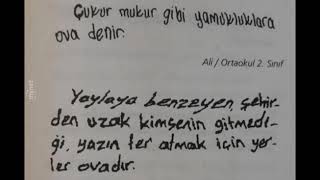 Çukur mukur gibi yamukluklara
ova denir.
Ali / Ortaokul 2. Sınıf
Yaylaya benzeyen, şehir-
den uzak kimsenin gitmedi-
ği, yazın ter atmak için yer-
ler ovadır.